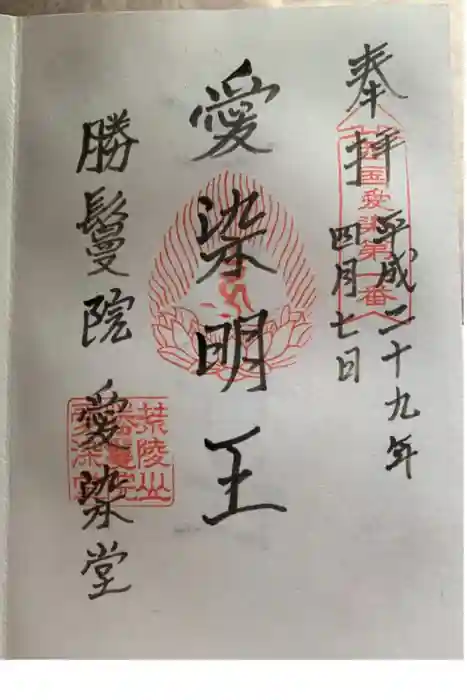 奉拝
平成二十九年
四月七日
西国愛染第一番
愛染明王
勝鬘院 愛染堂
荒陵山
勝鬘院
愛染堂